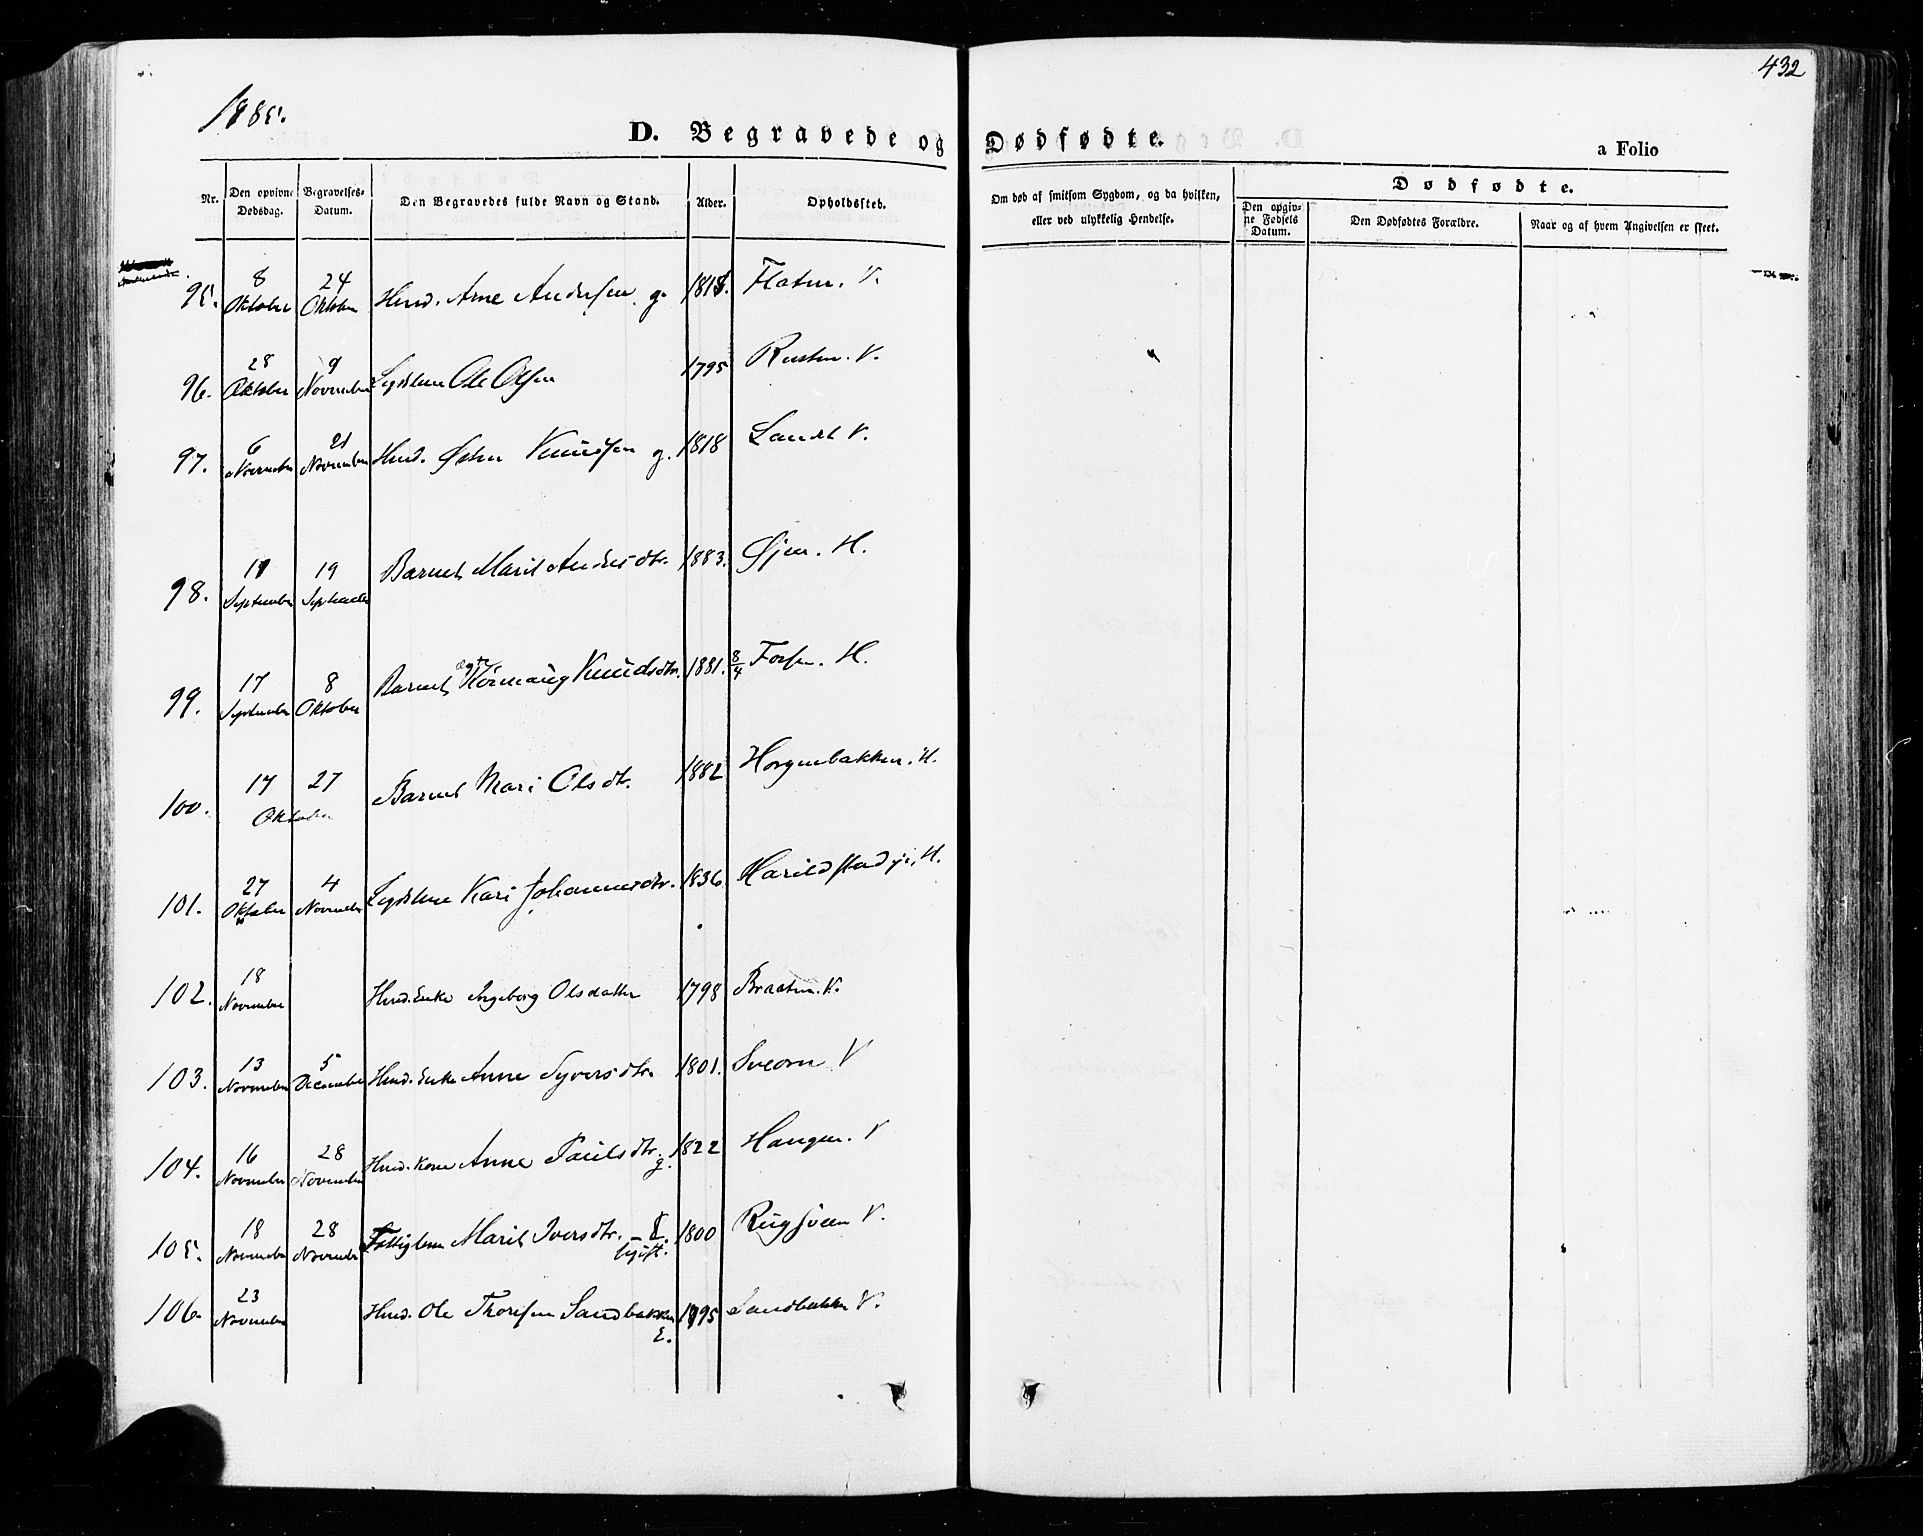 432
1885.
D. Begravede og Dødfødte.
a Folio
Nr. Den opgivne Dødsdag. Begravelses-Datum. Den Begravedes fulde Navn og Stand. Alder. Opholdssted. Om død af smitsom Sygdom, og da hvilken, eller ved ulykkelig Hendelse. Dødfødte.
Den opgivne Fødsels Datum. Den Dødfødtes Forældre. Naar og af hvem Angivelsen er skeet.
95. 8 Oktober 24 Oktober Huusd. Arne Andersen g. 1818. Flaten. V.
96. 28 Oktober 9 November Lægdslem Ole Olsen 1795 Rusten. V.
97. 6 November 21 November Huusd. Østen Knudsen g. 1818 Sandb V.
98. 11 September 19 September Barnet Marit Andersdtr. 1883. Øjen. H.
99. 17 September 8 Oktober Barnet ægte Rønnaug Knudsdtr. 1881. 8/4 Forsen. H.
100. 17 27 Oktober Barnet Mari Olsdtr. 1882 Horgenbakken. H.
101. 27 Oktober 4 November Lægdslem Kari Johannesdtr. 1836. Harildstadeje, H.
102. 18 November Huusd. Enke Ingeborg Olsdatter 1798 Braaten. V.
103. 13 November 5 December Huusd. Enke Anne Syversdtr. 1801. Sveom V
104. 16 November 28 November Huusd. Kone Anne Paulsdtr. g. 1822 Haugen. V
105. 18 November 28 November Fattiglem Marit Iversdtr. – E. ugift. 1800 Rugsveen V.
106. 23 November Huusd. Ole Thoresen Sandbakken E. 1795 Sandbakken V.